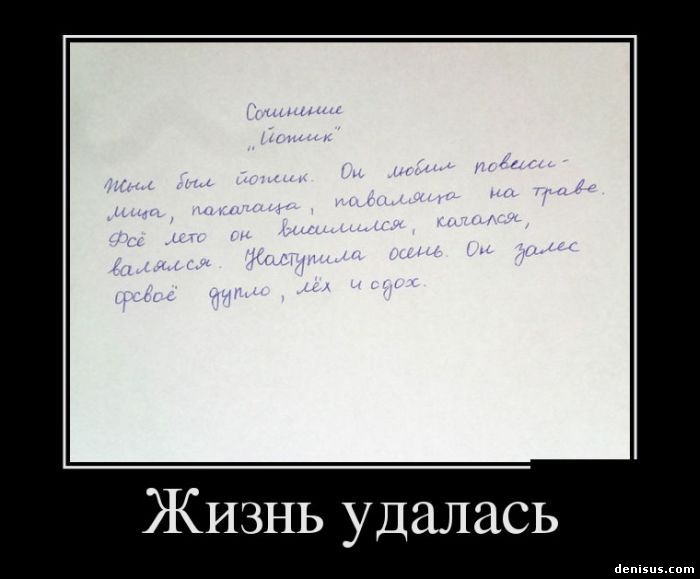 Сочинение
„Йожик"
Жыл был йожик. Он любил повесили-
лица, пакачаца, паваляца на траве.
Фсё лето он висилился, качался,
валялся. Наступила осень. Он залес
фсваё дупло, лёх и сдох.
Жизнь удалась
denisus.com